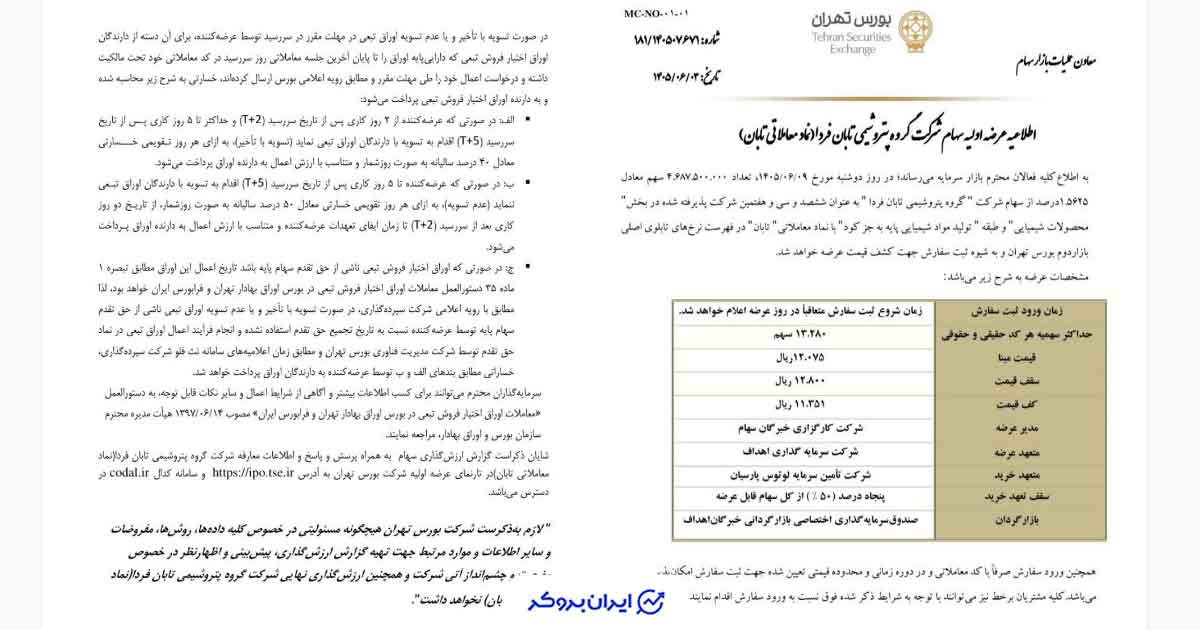 MC-NO-۰۱-۰۱
بورس تهران
Tehran Securities
Exchange
شماره: ۱۸۱/۱۴۰۵۰۷۶۷۱
معاون عملیات بازار سهام
تاریخ: ۱۴۰۵/۰۶/۰۳
اطلاعیه عرضه اولیه سهام شرکت گروه پتروشیمی تابان فردا (نماد معاملاتی تابان)
به اطلاع کلیه فعالان محترم بازار سرمایه می‌رساند؛ در روز دوشنبه مورخ ۱۴۰۵/۰۶/۰۹، تعداد ۴.۶۸۷.۵۰۰.۰۰۰ سهم معادل
۱.۵۶۲۵درصد از سهام شرکت " گروه پتروشیمی تابان فردا " به عنوان ششصد و سی و هفتمین شرکت پذیرفته شده در بخش"
محصولات شیمیایی" و طبقه " تولید مواد شیمیایی پایه به جز کود" با نماد معاملاتی" تابان" در فهرست نرخ‌های تابلوی اصلی
بازاردوم بورس تهران و به شیوه ثبت سفارش جهت کشف قیمت عرضه خواهد شد.
مشخصات عرضه به شرح زیر می‌باشد:
زمان ورود ثبت سفارش زمان شروع ثبت سفارش متعاقباً در روز عرضه اعلام خواهد شد.
حداکثر سهمیه هر کد حقیقی و حقوقی ۱۳.۲۸۰ سهم
قیمت مبنا ۱۲.۰۷۵ریال
سقف قیمت ۱۲.۸۰۰ ریال
کف قیمت ۱۱.۳۵۱ ریال
مدیر عرضه شرکت کارگزاری خبرگان سهام
متعهد عرضه شرکت سرمایه گذاری اهداف
متعهد خرید شرکت تأمین سرمایه لوتوس پارسیان
سقف تعهد خرید پنجاه درصد (۵۰ ٪) از کل سهام قابل عرضه
بازارگردان صندوق‌سرمایه‌گذاری اختصاصی بازارگردانی خبرگان‌اهداف
همچنین ورود سفارش صرفاً با کد معاملاتی و در دوره زمانی و محدوده قیمتی تعیین شده جهت ثبت سفارش امکان‌پذیر
می‌باشد.کلیه مشتریان برخط نیز می‌توانند با توجه به شرایط ذکر شده فوق نسبت به ورود سفارش اقدام نمایند
در صورت تسویه با تأخیر و یا عدم تسویه اوراق تبعی در مهلت مقرر در سررسید توسط عرضه‌کننده، برای آن دسته از دارندگان
اوراق اختیار فروش تبعی که دارایی‌پایه اوراق را تا پایان آخرین جلسه معاملاتی روز سررسید در کد معاملاتی خود تحت مالکیت
داشته و درخواست اعمال خود را طی مهلت مقرر و مطابق رویه اعلامی بورس ارسال کرده‌اند، خسارتی به شرح زیر محاسبه شده
و به دارنده اوراق اختیار فروش تبعی پرداخت می‌شود:
▪ الف: در صورتی که عرضه‌کننده از ۲ روز کاری پس از تاریخ سررسید (T+2) و حداکثر تا ۵ روز کاری پس از تاریخ
سررسید (T+5) اقدام به تسویه با دارندگان اوراق تبعی نماید (تسویه با تأخیر)، به ازای هر روز تقویمی خسارتی
معادل ۴۰ درصد سالیانه به صورت روزشمار و متناسب با ارزش اعمال به دارنده اوراق پرداخت می‌شود.
▪ ب: در صورتی که عرضه‌کننده تا ۵ روز کاری پس از تاریخ سررسید (T+5) اقدام به تسویه با دارندگان اوراق تبعی
ننماید (عدم تسویه)، به ازای هر روز تقویمی خسارتی معادل ۵۰ درصد سالیانه به صورت روزشمار، از تاریخ دو روز
کاری بعد از سررسید (T+2) تا زمان ایفای تعهدات عرضه‌کننده و متناسب با ارزش اعمال به دارنده اوراق پرداخت
می‌شود.
▪ ج: در صورتی که اوراق اختیار فروش تبعی ناشی از حق تقدم سهام پایه باشد تاریخ اعمال این اوراق مطابق تبصره ۱
ماده ۳۵ دستورالعمل معاملات اوراق اختیار فروش تبعی در بورس اوراق بهادار تهران و فرابورس ایران خواهد بود، لذا
مطابق با رویه اعلامی شرکت سپرده‌گذاری، در صورت تسویه با تأخیر و یا عدم تسویه اوراق تبعی ناشی از حق تقدم
سهام پایه توسط عرضه‌کننده نسبت به تاریخ تجمیع حق تقدم استفاده نشده و انجام فرآیند اعمال اوراق تبعی در نماد
حق تقدم توسط شرکت مدیریت فناوری بورس تهران و مطابق زمان اعلامیه‌های سامانه نت فلو شرکت سپرده‌گذاری،
خساراتی مطابق بندهای الف و ب توسط عرضه‌کننده به دارندگان اوراق پرداخت خواهد شد.
سرمایه‌گذاران محترم می‌توانند برای کسب اطلاعات بیشتر و آگاهی از شرایط اعمال و سایر نکات قابل توجه، به دستورالعمل
«معاملات اوراق اختیار فروش تبعی در بورس اوراق بهادار تهران و فرابورس ایران» مصوب ۱۳۹۷/۰۶/۱۴ هیأت مدیره محترم
سازمان بورس و اوراق بهادار، مراجعه نمایند.
شایان ذکراست گزارش ارزش‌گذاری سهام به همراه پرسش و پاسخ و اطلاعات معارفه شرکت گروه پتروشیمی تابان فردا(نماد
معاملاتی تابان)در تارنمای عرضه اولیه شرکت بورس تهران به آدرس https://ipo.tse.ir و سامانه کدال codal.ir در
دسترس می‌باشد.
" لازم به‌ذکرست شرکت بورس تهران هیچگونه مسئولیتی در خصوص کلیه داده‌ها، روش‌ها، مفروضات
و سایر اطلاعات و موارد مرتبط جهت تهیه گزارش ارزش‌گذاری، پیش‌بینی و اظهارنظر در خصوص
و چشم‌انداز آتی شرکت و همچنین ارزش‌گذاری نهایی شرکت گروه پتروشیمی تابان فردا(نماد
بان) نخواهد داشت".
ایران بروکر